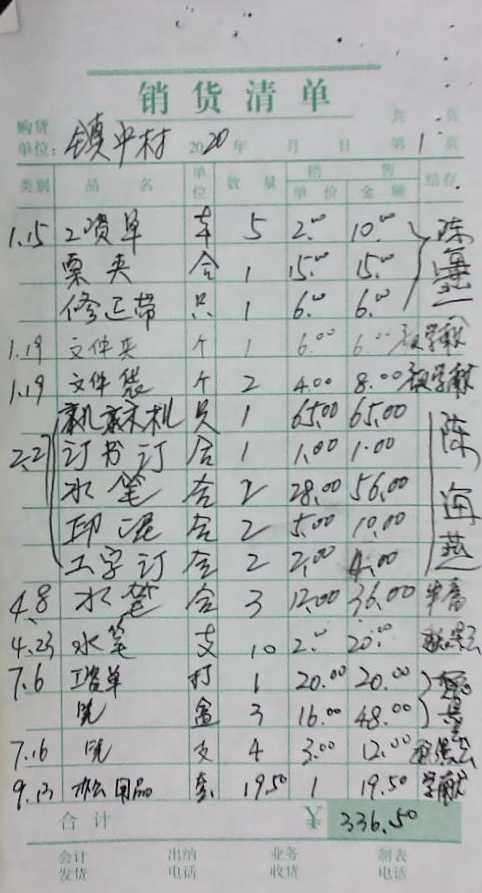 销货清单
购货 共 页
单位: 镇中村 2020年 月 日 第1页
类别 品名 单位 数量 销售 结存
单价 金额
1.15 工资单 本 5 2.00 10.00 陈
票夹 合 1 15.00 15.00
修正带 只 1 6.00 6.00
1.19 文件夹 个 1 6.00 6.00
1.19 文件袋 个 2 4.00 8.00
只 1 65.00 65.00 陈海燕
2.27 订书订 合 1 1.00 1.00
水笔 合 2 28.00 56.00
印泥 合 2 5.00 10.00
工字订 合 2 2.00 4.00
4.8 水笔 合 3 12.00 36.00
4.23 水笔 支 10 2.00 20.00
7.6 工资单 打 1 20.00 20.00
盒 3 16.00 48.00
7.16 支 4 3.00 12.00
9.13 办公用品 套 19.50 1 19.50
合计 ¥ 336.50
会计 出纳 业务 制表
发货 电话 收货 电话